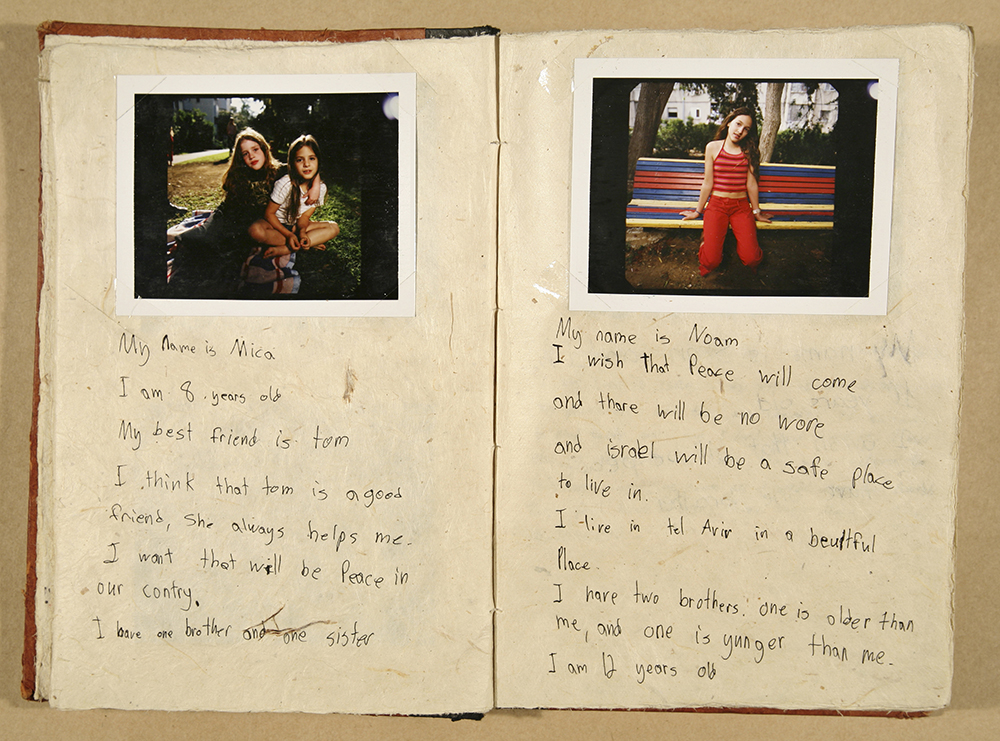 My Name is Mica
I am 8 years old
My best friend is tom
I think that tom is a good
friend, She always helps me.
I want that will be Peace in
our contry.
I have one brother and one sister
My name is Noam
I wish that Peace will come
and thare will be no wore
and israel will be a safe place
to live in.
I live in tel Aviv in a beuitful
Place.
I have two brothers. one is older than
me, and one is yunger than me.
I am 12 years old